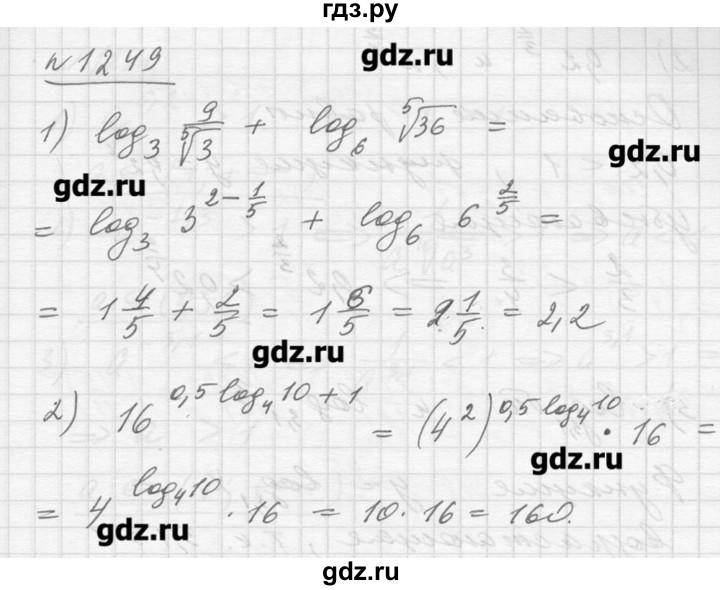 гдз.ру
№1249
gdz.ru
1) log₃ 9/⁵√3 + log₆ ⁵√36 =
gdz.ru
gdz.ru
= log₃ 3^(2 - 1/5) + log₆ 6^(2/5) =
= 1 4/5 + 2/5 = 1 6/5 = 2 1/5 = 2,2
gdz.ru
2) 16^(0,5 log₄ 10 + 1) = (4²)^(0,5 log₄ 10) · 16 =
gdz.ru
= 4^(log₄ 10) · 16 = 10 · 16 = 160.
gdz.ru
gdz.ru